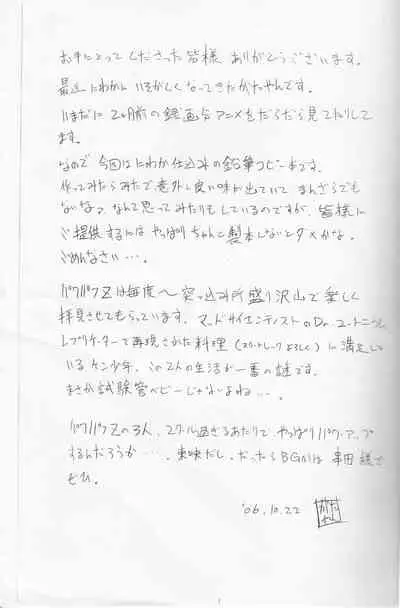 お手にとってくださった皆様 ありがとうございます。
最近にわかに いそがしくなってきたがたやんです。
いまだに2ヶ月前の録画分アニメをだらだら見てたりして
ます。
なので 今回はにわか仕込みの鉛筆コピー本です。
作ってみたらみたで意外と良い味が出ていて まんざらでも
ないな？なんて思ってみたりもしているのですが、皆様に
ご提供するには やっぱりちゃんと製本しないとダメかな。
ごめんなさい…。
パワパフZは毎度〜突っ込み所盛り沢山で楽しく
拝見させてもらっています。マッドサイエンティストのDr.ユートニウム、
レプリケーターで再現された料理（スタートレックよろしく）に満足して
いるケン少年、この2人の生活が一番の謎です。
まさか試験管ベビーじゃないよね…。
パワパフZの3人、2クール過ぎるあたりで、やっぱりパワーアップ
するんだろうか…。東映だし。だったらBGMは 串田 様で
ぜひ。
'06.10.22